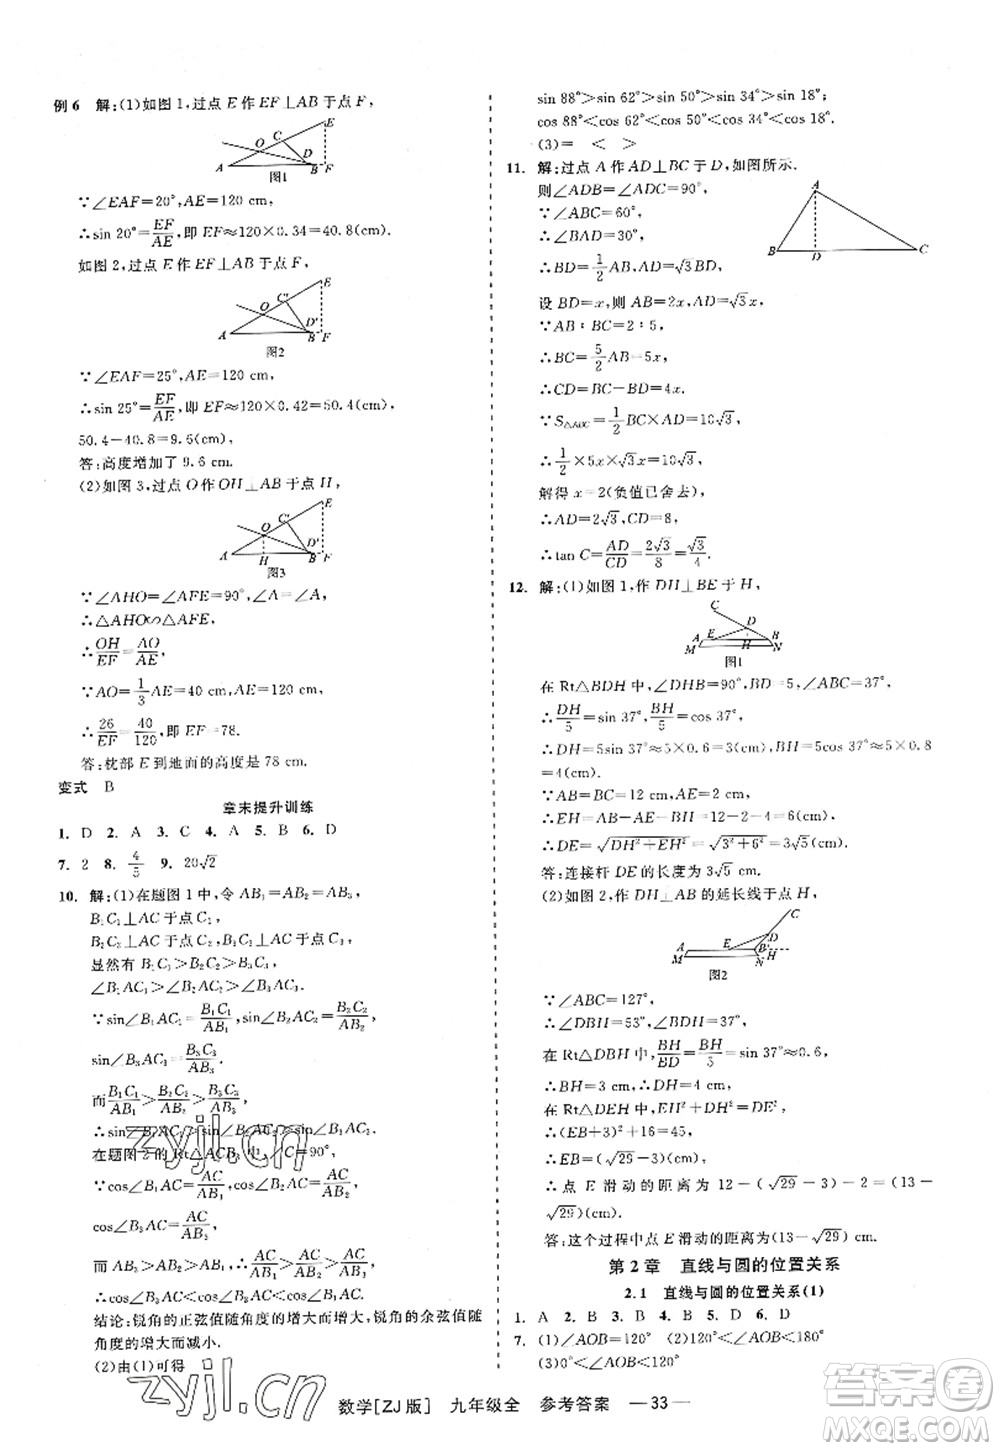 例6 解:(1)如图1,过点E作EF⊥AB于点F,
E
O C
D
A B F
图1
∵∠EAF=20°,AE=120 cm,
∴sin 20°=EF/AE,即EF≈120×0.34=40.8(cm).
如图2,过点E作EF⊥AB于点F,
E
O C'
D'
A B F
图2
∵∠EAF=25°,AE=120 cm,
∴sin 25°=EF/AE,即EF≈120×0.42=50.4(cm),
50.4-40.8=9.6(cm).
答:高度增加了9.6 cm.
(2)如图3,过点O作OH⊥AB于点H,
E
O C'
D'
A H B F
图3
∵∠AHO=∠AFE=90°,∠A=∠A,
∴△AHO∽△AFE,
∴OH/EF=AO/AE,
∵AO=1/3AE=40 cm,AE=120 cm,
∴26/EF=40/120,即EF=78.
答:枕部E到地面的高度是78 cm.
变式 B
章末提升训练
1. D 2. A 3. C 4. A 5. B 6. D
7. 2 8. 4/5 9. 20√2
10. 解:(1)在题图1中,令AB₁=AB₂=AB₃,
B₁C₁⊥AC于点C₁,
B₂C₂⊥AC于点C₂,B₃C₃⊥AC于点C₃,
显然有B₁C₁>B₂C₂>B₃C₃,
∠B₁AC₁>∠B₂AC₂>∠B₃AC₃.
∵sin∠B₁AC₁=B₁C₁/AB₁,sin∠B₂AC₂=B₂C₂/AB₂,
sin∠B₃AC₃=B₃C₃/AB₃,
而B₁C₁/AB₁>B₂C₂/AB₂>B₃C₃/AB₃,
∴sin∠B₁AC₁>sin∠B₂AC₂>sin∠B₃AC₃.
在题图2的Rt△ACB₃中,∠C=90°,
∵cos∠B₁AC=AC/AB₁,cos∠B₂AC=AC/AB₂,
cos∠B₃AC=AC/AB₃,
∵AB₃>AB₂>AB₁,∴AC/AB₁>AC/AB₂>AC/AB₃,
∴cos∠B₁AC>cos∠B₂AC>cos∠B₃AC.
结论:锐角的正弦值随角度的增大而增大,锐角的余弦值随
角度的增大而减小.
(2)由(1)可得
sin 88°>sin 62°>sin 50°>sin 34°>sin 18°;
cos 88°<cos 62°<cos 50°<cos 34°<cos 18°.
(3)= < >
11. 解:过点A作AD⊥BC于D,如图所示.
则∠ADB=∠ADC=90°,
A
B D C
∵∠ABC=60°,
∴∠BAD=30°,
∴BD=1/2AB,AD=√3BD,
设BD=x,则AB=2x,AD=√3x.
∵AB∶BC=2∶5,
∴BC=5/2AB=5x,
∴CD=BC-BD=4x.
∵S△ABC=1/2BC×AD=10√3,
∴1/2×5x×√3x=10√3,
解得x=2(负值已舍去),
∴AD=2√3,CD=8,
∴tan C=AD/CD=2√3/8=√3/4.
12. 解:(1)如图1,作DH⊥BE于H,
C
D
A E B
M H N
图1
在Rt△BDH中,∠DHB=90°,BD=5,∠ABC=37°,
∴DH/5=sin 37°,BH/5=cos 37°,
∴DH=5sin 37°≈5×0.6=3(cm),BH=5cos 37°≈5×0.8
=4(cm).
∵AB=BC=12 cm,AE=2 cm,
∴EH=AB-AE-BH=12-2-4=6(cm),
∴DE=√(DH²+EH²)=√(3²+6²)=3√5(cm).
答:连接杆DE的长度为3√5 cm.
(2)如图2,作DH⊥AB的延长线于点H,
C
D
A E B' H
M N
图2
∵∠ABC=127°,
∴∠DBH=53°,∠BDH=37°,
在Rt△DBH中,BH/BD=BH/5=sin 37°≈0.6,
∴BH=3 cm,∴DH=4 cm,
在Rt△DEH中,EH²+DH²=DE²,
∴(EB+3)²+16=45,
∴EB=(√29-3)(cm),
∴点E滑动的距离为12-(√29-3)-2=(13-
√29)(cm).
答:这个过程中点E滑动的距离为(13-√29)cm.
第2章 直线与圆的位置关系
2.1 直线与圆的位置关系(1)
1. A 2. B 3. B 4. B 5. D 6. D
7. (1)∠AOB=120° (2)120°<∠AOB<180°
(3)0°<∠AOB<120°
数学[ZJ版] 九年级全 参考答案 —33—
zyjl.cn
zyjl.cn